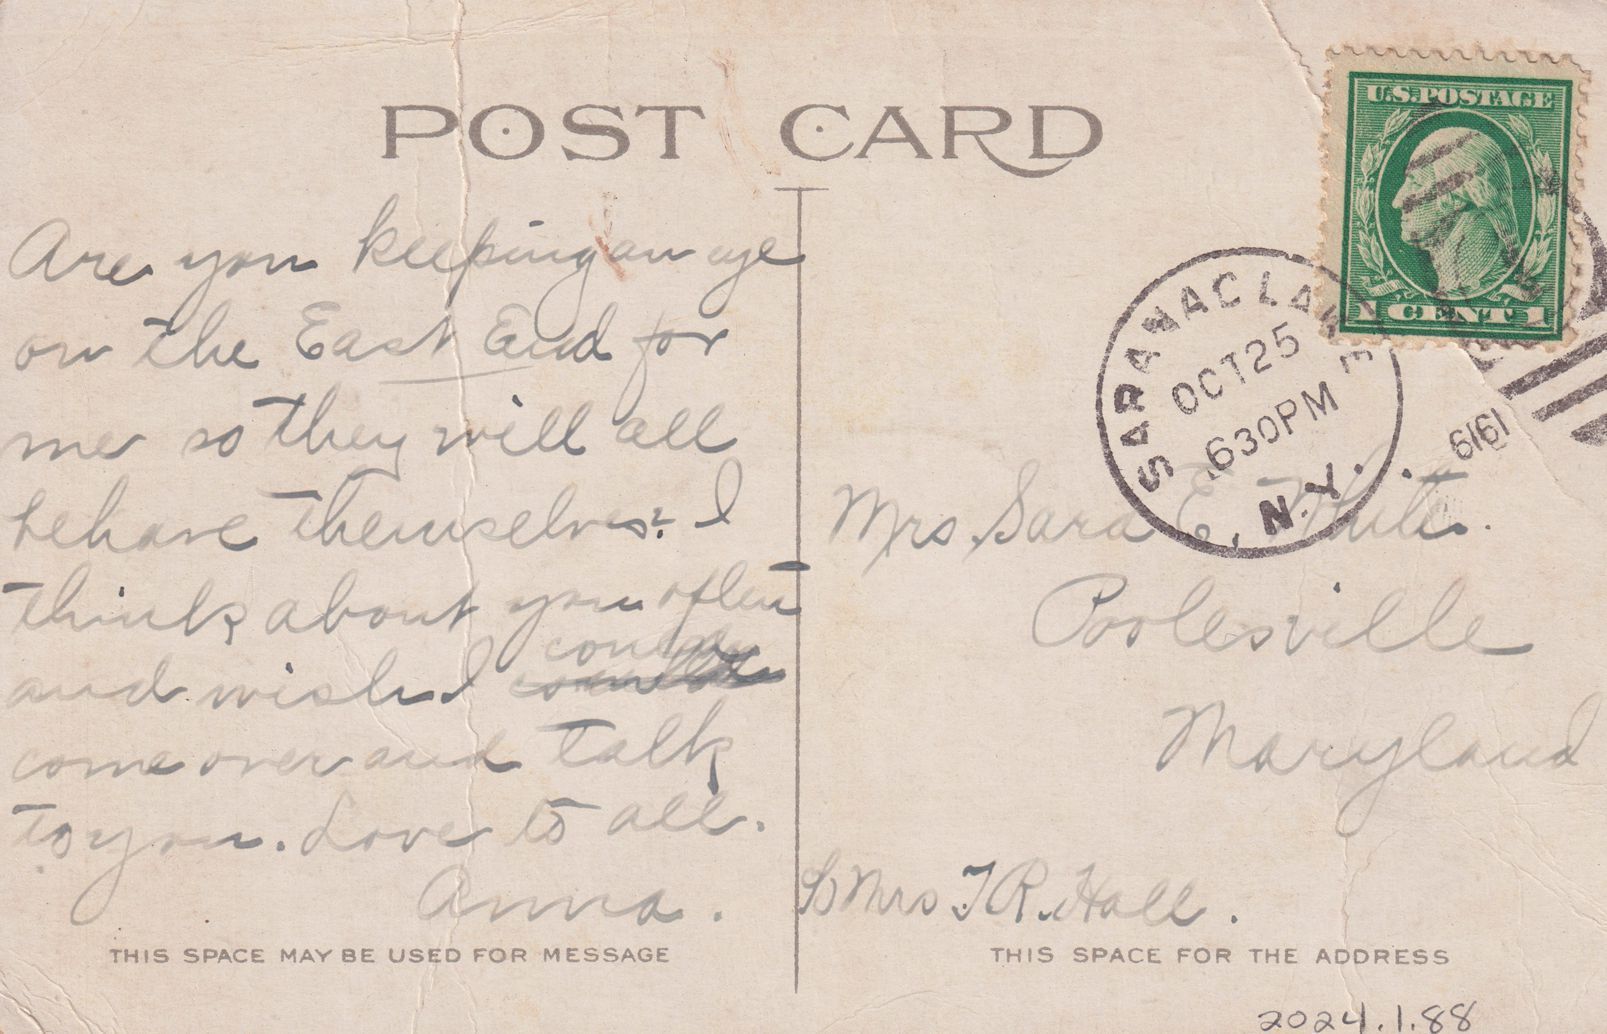 POST CARD
U.S. POSTAGE
1 CENT 1
SARANAC LAKE
OCT 25
630 PM
N.Y.
1919
Are you keeping an eye
on the East End for
me so they will all
behave themselves? I
think about you often
and wish I could
come over and talk
to you. Love to all.
Anna.
Mrs. Sara E. White.
Poolesville
Maryland
Mrs T R. Hall.
THIS SPACE MAY BE USED FOR MESSAGE
THIS SPACE FOR THE ADDRESS
2024.1.88